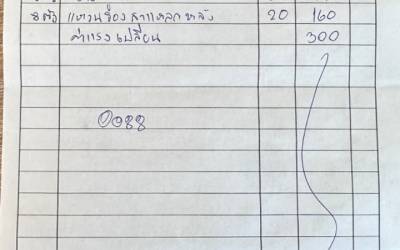 8 ตัว แหวนรอง สาแหลก หลัง 20 160
ค่าแรง เปลี่ยน 300
0088